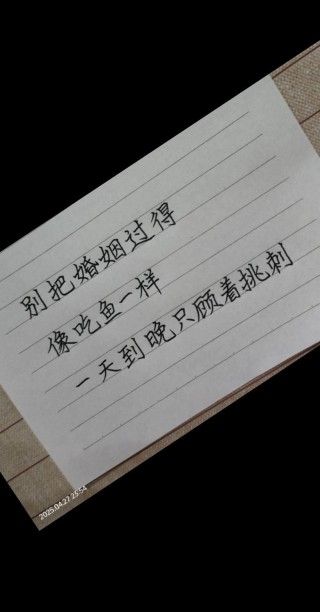 别把婚姻过得
像吃鱼一样
一天到晚只顾着挑刺
2025.04.27 23:54